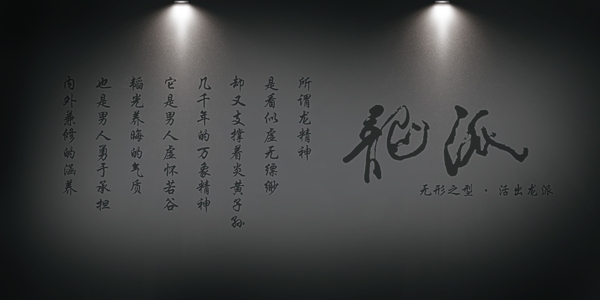 龍派
无形之型 · 活出龙派
所谓龙精神
是看似虚无缥缈
却又支撑着炎黄子孙
几千年的万象精神
它是男人虚怀若谷
韬光养晦的气质
也是男人勇于承担
内外兼修的涵养